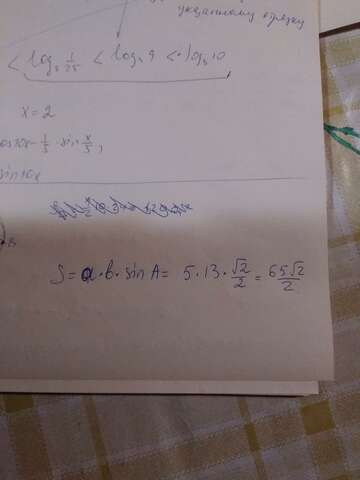 указанному отрезку
< log₅ 1/25 < log₅ 9 < log₅ 10
x = 2
cos10x - 1/3 · sin x/3 ;
sin10x
B
S = a · b · sin A = 5 · 13 · √2/2 = 65√2/2